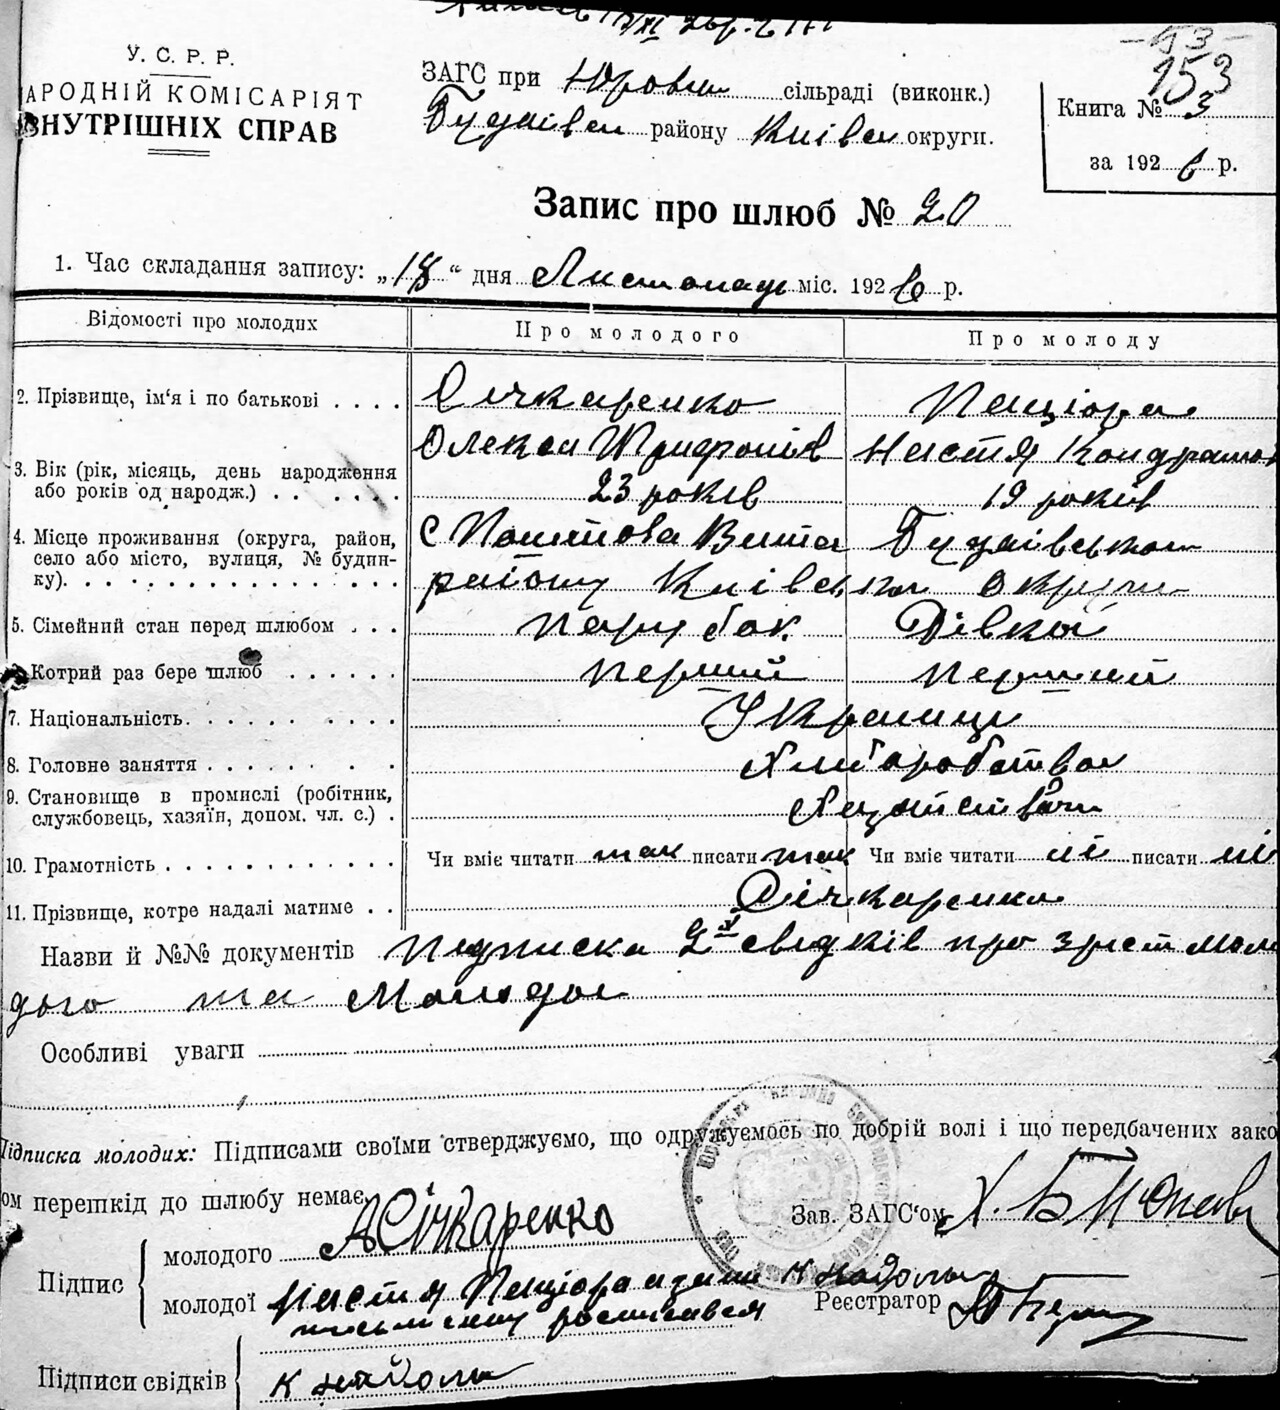 153
У. С. Р. Р.
АРОДНІЙ КОМІСАРІЯТ
ВНУТРІШНІХ СПРАВ
ЗАГС при Юровск сільраді (виконк.)
Будаівск району Київск округи.
Книга № 3
за 1926 р.
Запис про шлюб № 20
1. Час складання запису: „18“ дня Листопада міс. 1926 р.
Відомості про молодих
Про молодого
Про молоду
2. Прізвище, ім'я і по батькові . . . .
Січкаренко
Пацюра
Олекса Трифонів
Настя Кондратов
3. Вік (рік, місяць, день народження
або років од народж.) . . . . . .
23 років
19 років
4. Місце проживання (округа, район,
село або місто, вулиця, № будин-
ку). . . . . . . . . . . . . . . .
с Поштова Вита Будаівського
району Київської Округи
5. Сімейний стан перед шлюбом . . .
Парубок
Дівка
Котрий раз бере шлюб . . . . . .
перший
перший
7. Національність. . . . . . . . . .
Українці
8. Головне заняття . . . . . . . .
Хліборобство
9. Становище в промислі (робітник,
службовець, хазяїн, допом. чл. с.) .
10. Грамотність . . . . . . . . . . . .
Чи вміє читати так писати так
Чи вміє читати ні писати ні
11. Прізвище, котре надалі матиме . .
Січкаренко
Назви й №№ документів Підписка 2х свідків про зріст моло
дого та Молодої
Особливі уваги
Підписка молодих: Підписами своїми стверджуємо, що одружуємось по добрій волі і що передбачених зако
ом перешкід до шлюбу немає.
Зав. ЗАГС'ом
Підпис
молодого АСічкаренко
молодої Настя Пацюра а за неї
Реєстратор
письменну росписався
Підписи свідків